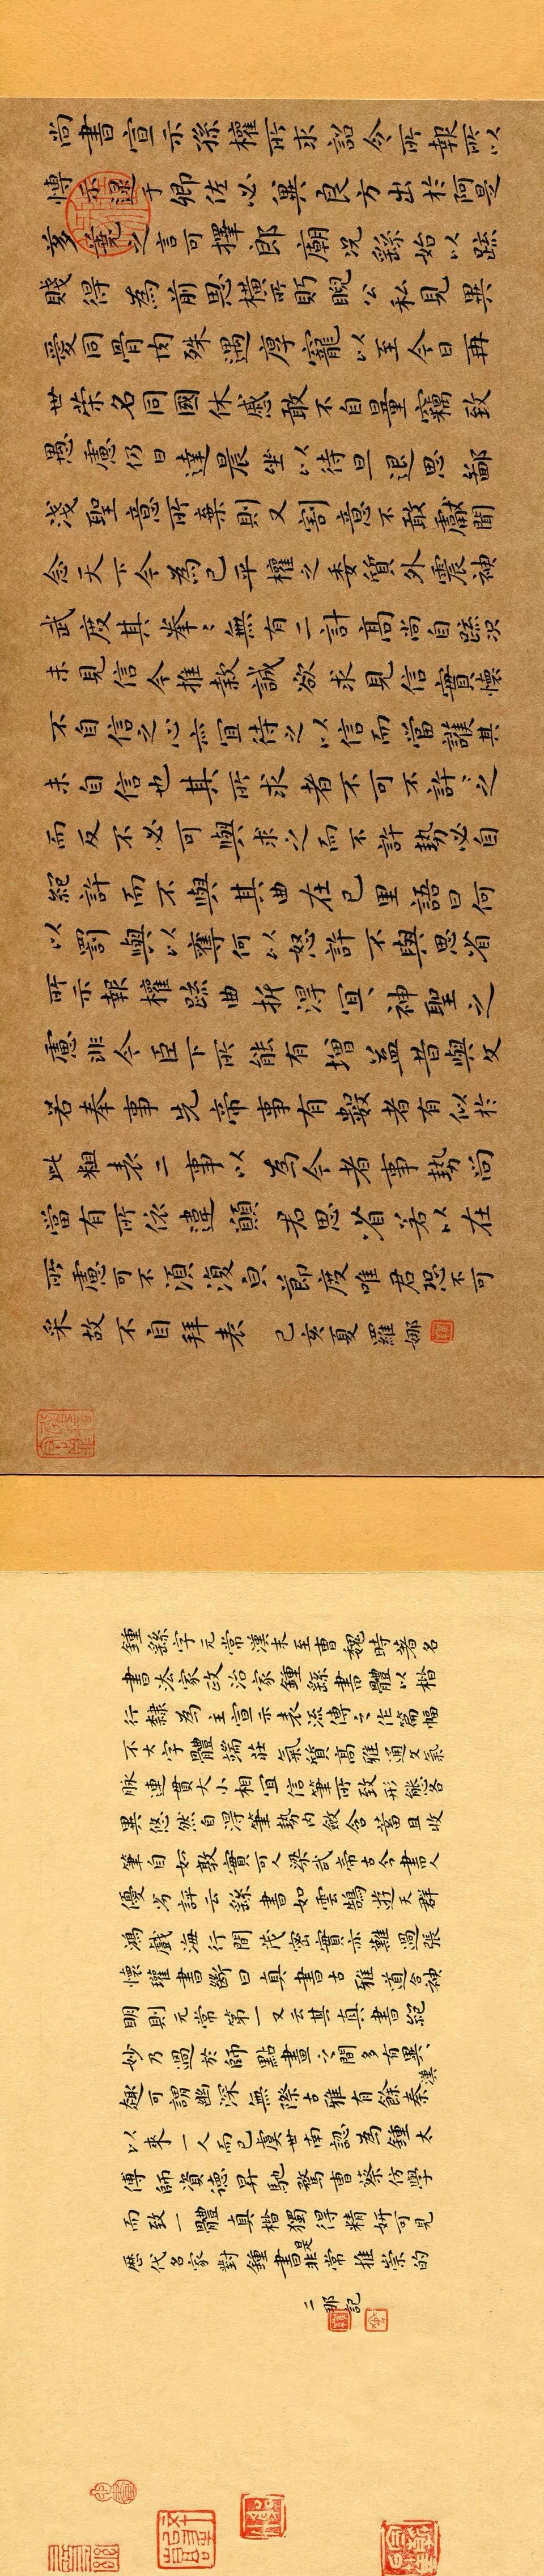 尚書宣示孫權所求詔令所報所以
博示逮于卿佐必冀良方出於阿是
芻蕘之言可擇郎廟況繇始以疏
賤得為前恩橫所眄睨公私見異
愛同骨肉殊遇厚寵以至今日再
世榮名同國休慼敢不自量竊致
愚慮仍日達晨坐以待旦退思鄙
淺聖意所棄則又割意不敢獻聞
念天下今為已平權之委質外震神
武度其拳〻無有二計高尚自疏況
未見信今推款誠欲求見信實懷
不自信之心亦宜待之以信而當護其
未自信也其所求者不可不許〻之
而反不必可與求之而不許勢必自
絕許而不與其曲在己里語曰何
以罰與以奪何以怒許不與思省
所示報權疏曲折得宜神聖之
慮非今臣下所能有增益昔與文
若奉事先帝事有數者有似於
此粗表二事以為今者事勢尚
當有所依違願君思省若以在
所慮可不須復節度唯君恐不可
采故不自拜表 己亥夏 羅娜
鍾繇字元常漢末至曹魏時著名
書法家政治家鍾繇書體以楷
行隸為主宣示表流傳之作篇幅
不大字體端莊氣質高雅通文氣
脉連貫大小相宜信筆所致形態各
異悠然自得筆勢內斂含蓄且收
筆自如敦實可人梁武帝古今書人
優劣評云繇書如雲鵠遊天群
鴻戲海行間茂密實亦難過張
懷瓘書斷曰真書古雅道合神
明則元常第一又云其真書絕
妙乃過於師點畫之間多有異
趣可謂幽深無際古雅有餘秦漢
以來一人而已虞世南認為鍾太
傅師資德昇馳騖曹蔡仿學
而致一體真楷獨得精妍可見
歷代名家對鍾書是非常推崇的
二那記